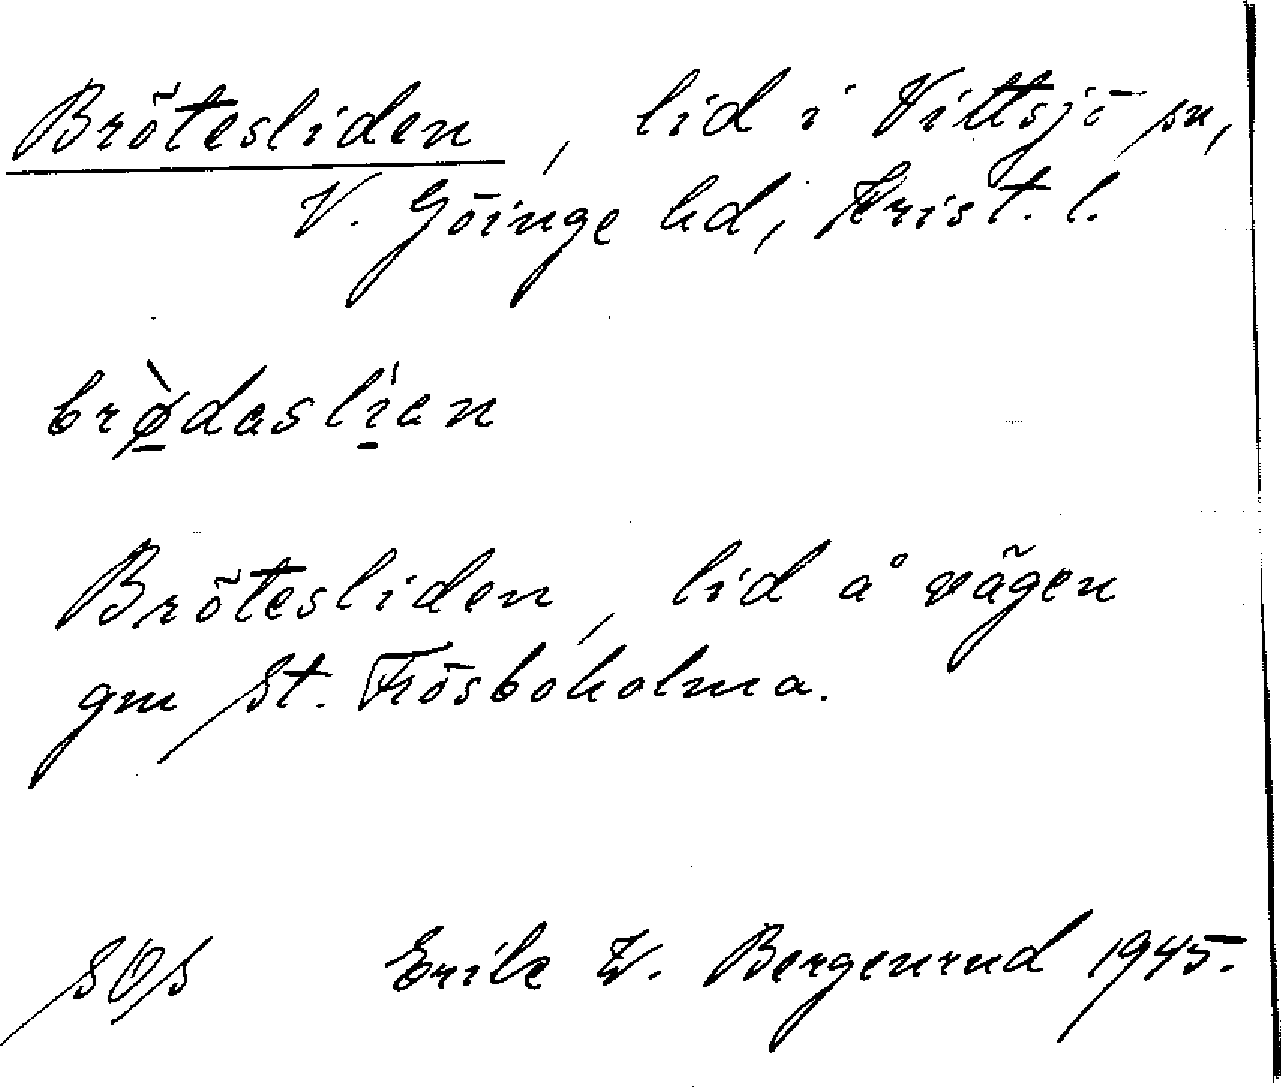 Brötesliden, lid i Vittsjö sn,
V. Göinge hd, Krist. l.
brø̲̀daslì̲an
Brötesliden, lid å vägen
gm St. Frösboholma.
SOS Erik W. Bergenrud 1945.